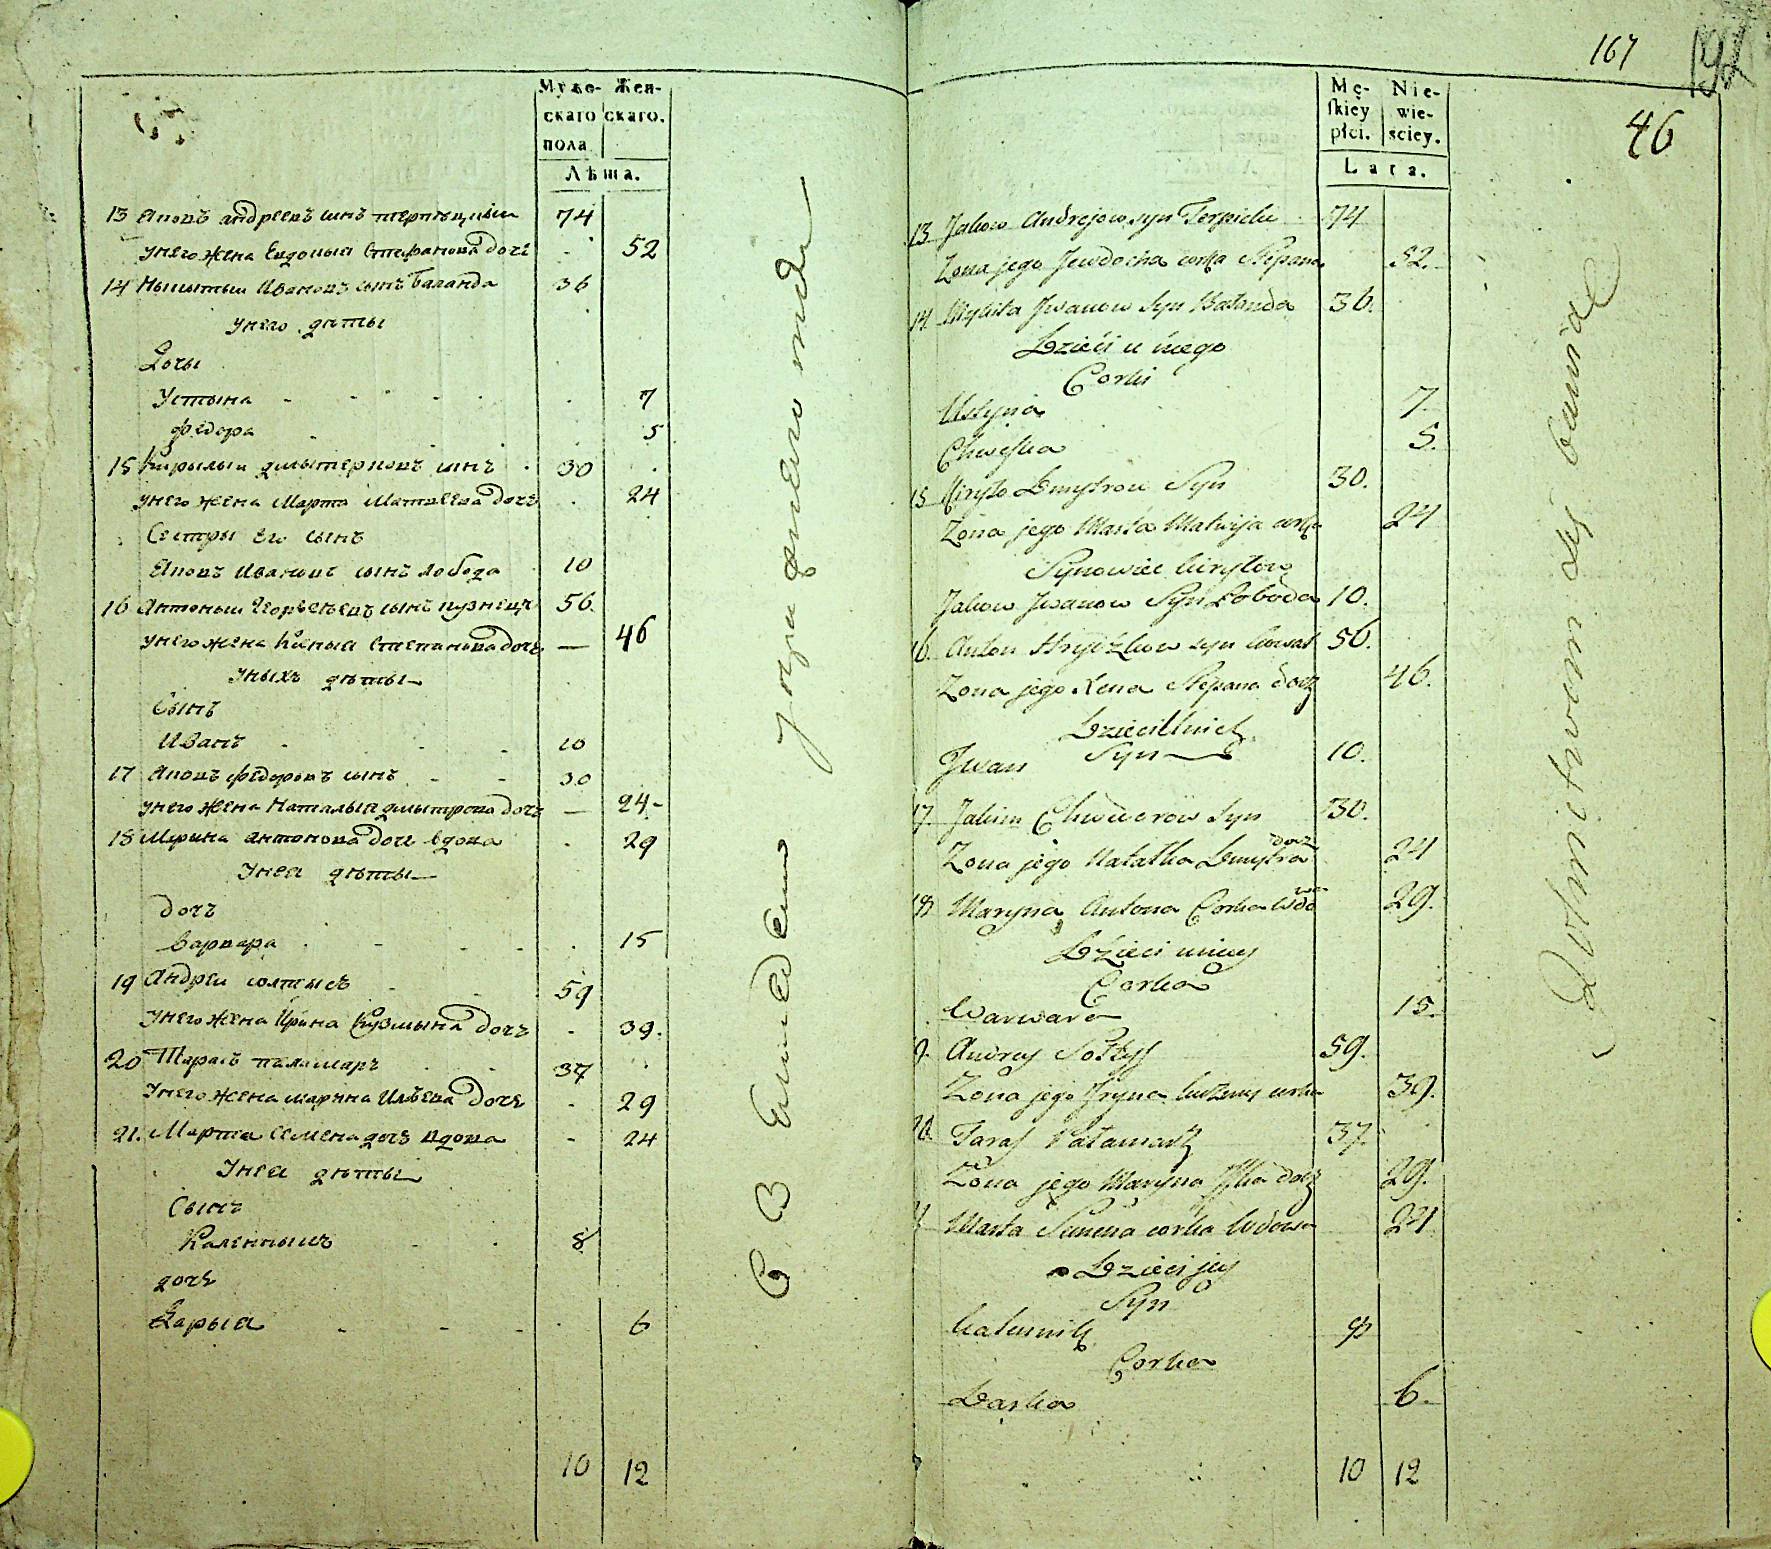 Муже- Жен-
скаго скаго.
пола
Лѣта.
13 Яковъ андреевъ сынъ терпѣцкыи 74
унего жена Евдокыя Стефанова дочь 52
14 Мыкытыи Ивановъ сынъ Баланда 36
унего дѣты
Дочы
Устына 7
Федора 5
15 Кирылыи дмытериовъ сынъ 30
унего жена Марта Матвеева дочъ 24
Сестры его сынъ
Яковъ Ивановъ сынъ Лобода 10
16 Антоныи сынъ кузнецъ 56.
унего жена Ксения Степанова дочь 46
Уныхъ дѣты
Сынъ
Иванъ 10
17 Яковъ Федоровъ сынъ 30
унего жена Наталыя дмытрова дочь 24
18 Мэрина антонова дочь вдова 29
Унея дѣты
дочъ
Варвара 15
19 Андреи солтысъ 59
Унего жена Ирина Кузмына дочъ 39.
20 Тарасъ паламаръ 37
Унего жена марина Илѣева дочь 29
21. Марта Семена дочъ вдова 24
Унея дѣты
Сынъ
Каленныкъ 8
дочь
Дарыя 6
10 12
167
46
Mę- Nie-
skiey wie-
płci. sciey.
Lata.
13 Jakow Andrejow syn Terpicki 74
Zona jego Jewdocha corka Stepana 52.
14 Mykita Jwanow Syn Bałanda 36.
Dzieci u niego
Corki
Ustyna 7.
Chweska 5.
15 Kiryło Dmytrow Syn 30.
Zona jego Marta Matwija corka 24
Synowiec Kiryłow
Jakow Jwanow Syn Łoboda 10.
16. Anton Hryczkow syn kowal 56.
Zona jego Xena Stepana docz 46.
Dzieci u nich
Syn
Jwan 10.
17. Jakim Chwedorow Syn 30.
Zona jego Natałka Dmytra docz 24
18 Maryna Antona Corka wdowa 29.
Dzieci u niey
Corka
Warwara 15.
9. Andrey Sołtys 59.
Zona jego Jryna Kuzmy corka 39.
20. Taras Pałamarz 37.
Zona jego Maryna Jlka docz 29.
Marta Semena corka Wdowa 24
Dzieci jey
Syn
Kalennik 8
Corka
Daska 6.
10 12